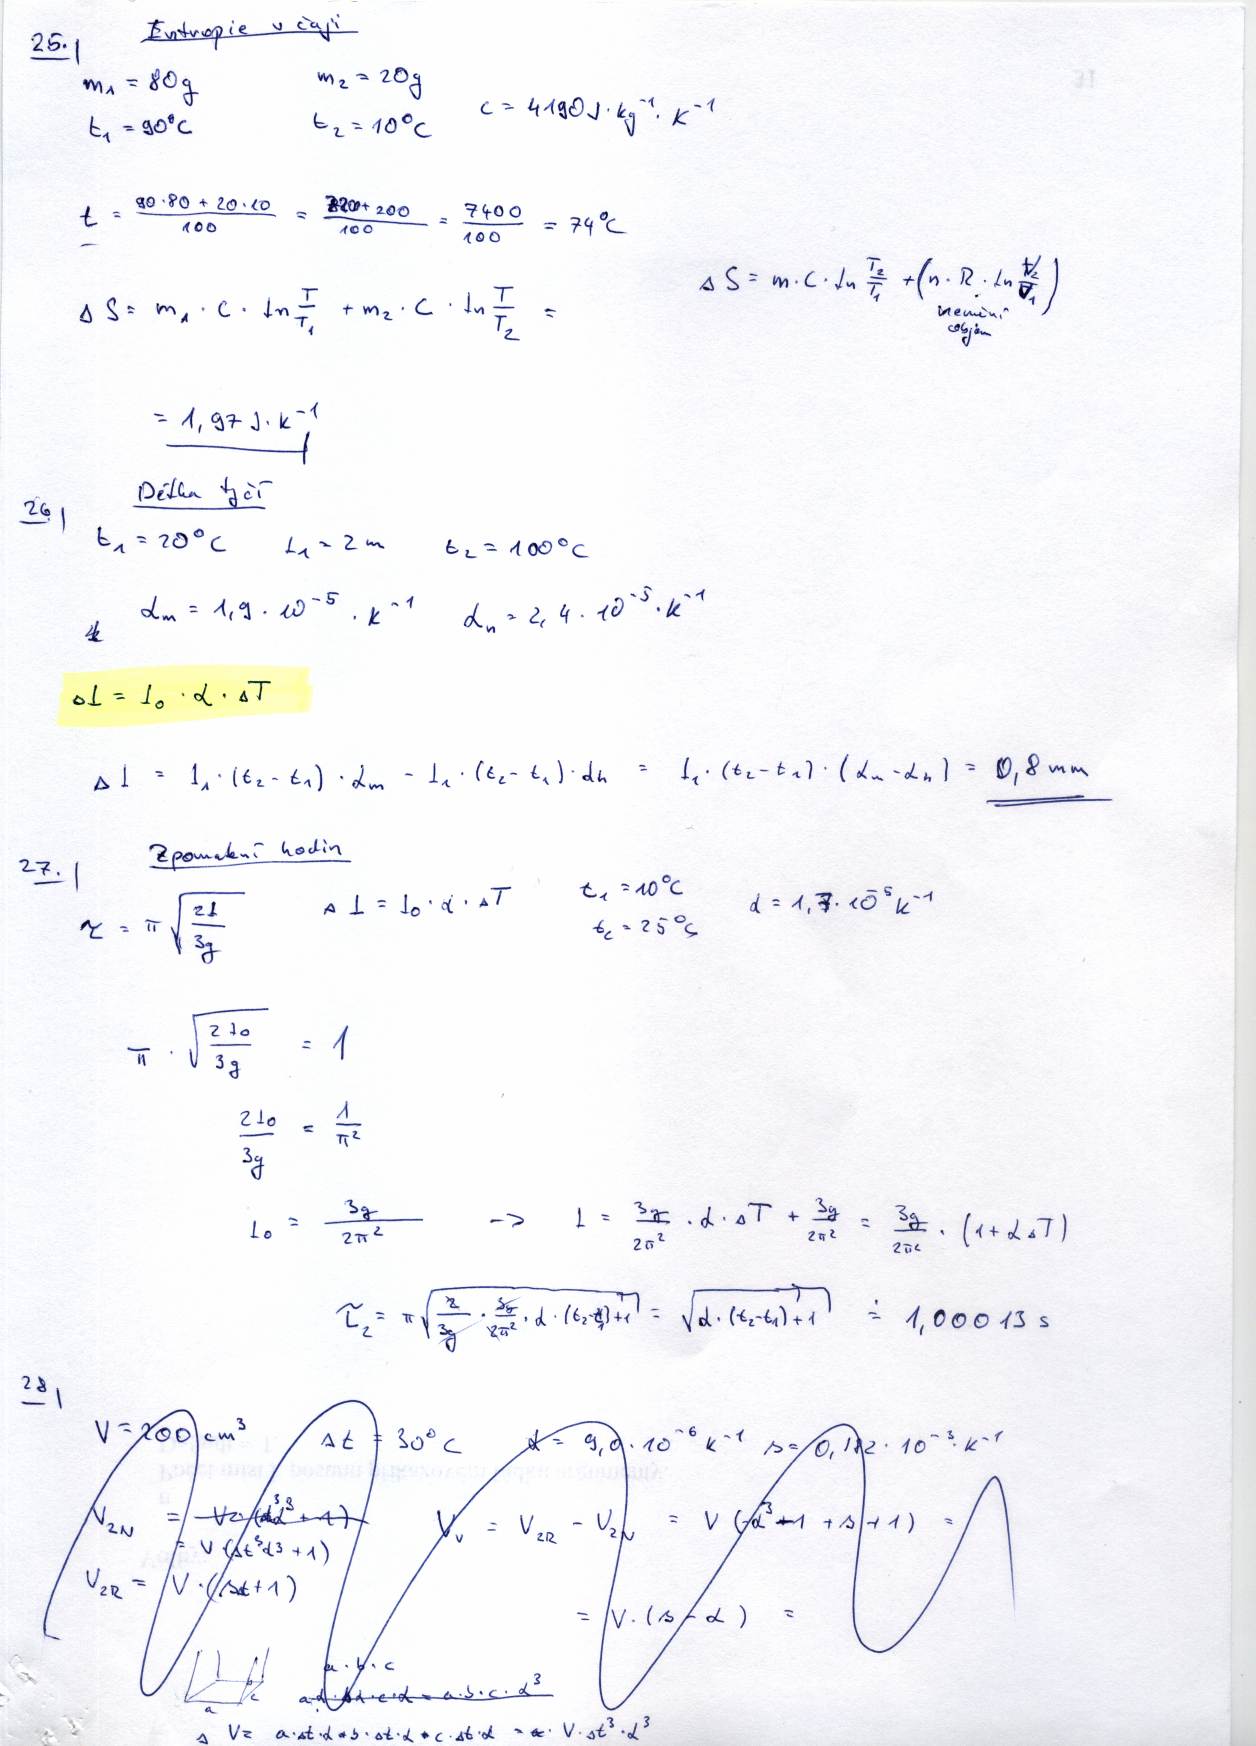 25.| Entropie v čaji
m₁ = 80g m₂ = 20g
t₁ = 90°C t₂ = 10°C c = 4190 J·kg⁻¹·K⁻¹
t = (90·80 + 20·10)/100 = (7200 + 200)/100 = 7400/100 = 74°C
ΔS = m·C·ln T₂/T₁ + (n·R·ln V₂/V₁)
nemění
objem
ΔS = m₁·C·ln T/T₁ + m₂·C·ln T/T₂ =
= 1,97 J·K⁻¹
26| Délka tyčí
t₁ = 20°C l₁ = 2 m t₂ = 100°C
α_m = 1,9·10⁻⁵·K⁻¹ α_h = 2,4·10⁻⁵·K⁻¹
Δl = l₀·α·ΔT
Δl = l₁·(t₂-t₁)·α_m - l₁·(t₂-t₁)·α_h = l₁·(t₂-t₁)·(α_m-α_h) = 0,8 mm
27.| Zpomalení hodin
τ = π √(2l/3g) Δl = l₀·α·ΔT t₁ = 10°C α = 1,7·10⁻⁵ K⁻¹
t₂ = 25°C
π·√(2l₀/3g) = 1
2l₀/3g = 1/π²
l₀ = 3g/2π² -> l = 3g/2π²·α·ΔT + 3g/2π² = 3g/2π²·(1+αΔT)
τ₂ = π√(2/3g·3g/2π²·α·(t₂-t₁)+1) = √(α·(t₂-t₁)+1) ≐ 1,00013 s
28|
V = 200 cm³ Δt = 30°C α = 9,0·10⁻⁶ K⁻¹ s = 0,182·10⁻³·K⁻¹
V₂N = V·(α³+1) V_V = V₂R - V₂N = V(-α³-1+s+1) =
= V(Δt³α³+1)
V₂R = V·(sΔt+1)
= V·(s-α) =
a·b·c
a b c
aα·bα·c·α = a·b·c·α³
ΔV = a·Δt·α·b·Δt·α·c·Δt·α = V·Δt³·α³